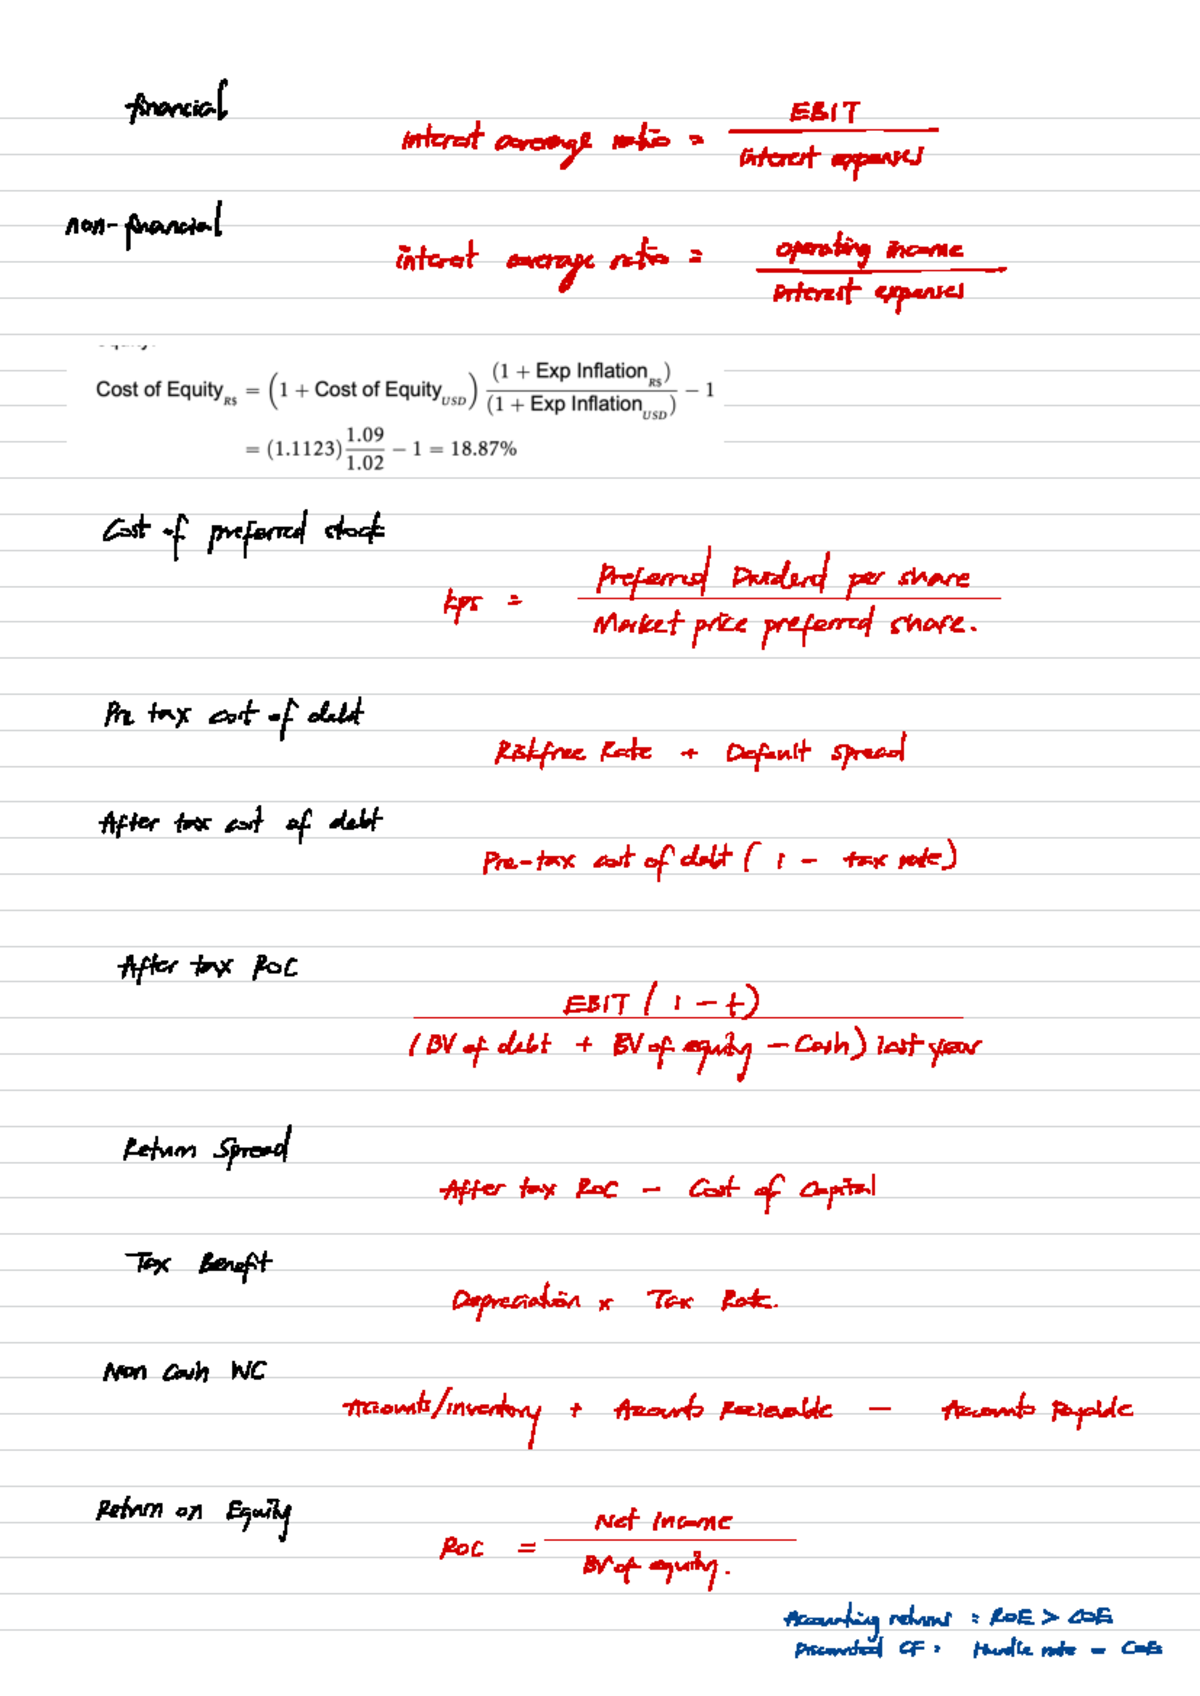 financial
interest coverage ratio = EBIT
interest expenses
non-financial
interest coverage ratio = operating income
interest expenses
Cost of Equity R$ = (1 + Cost of Equity USD) (1 + Exp Inflation R$) / (1 + Exp Inflation USD) − 1
= (1.1123) 1.09 / 1.02 − 1 = 18.87%
Cost of preferred stock
kps = Preferred Dividend per share
Market price preferred share.
Pre tax cost of debt
Riskfree Rate + Default spread
After tax cost of debt
Pre-tax cost of debt (1 - tax rate)
After tax ROC
EBIT (1 - t)
(BV of debt + BV of equity - Cash) last year
Return Spread
After tax ROC - Cost of Capital
Tax Benefit
Depreciation x Tax Rate.
Non Cash WC
Accounts/inventory + Accounts Recievable - Accounts Payable
Return on Equity
ROC = Net Income
BV of equity.
Accounting returns : ROE > COE
Discounted CF : Hurdle rate = COE